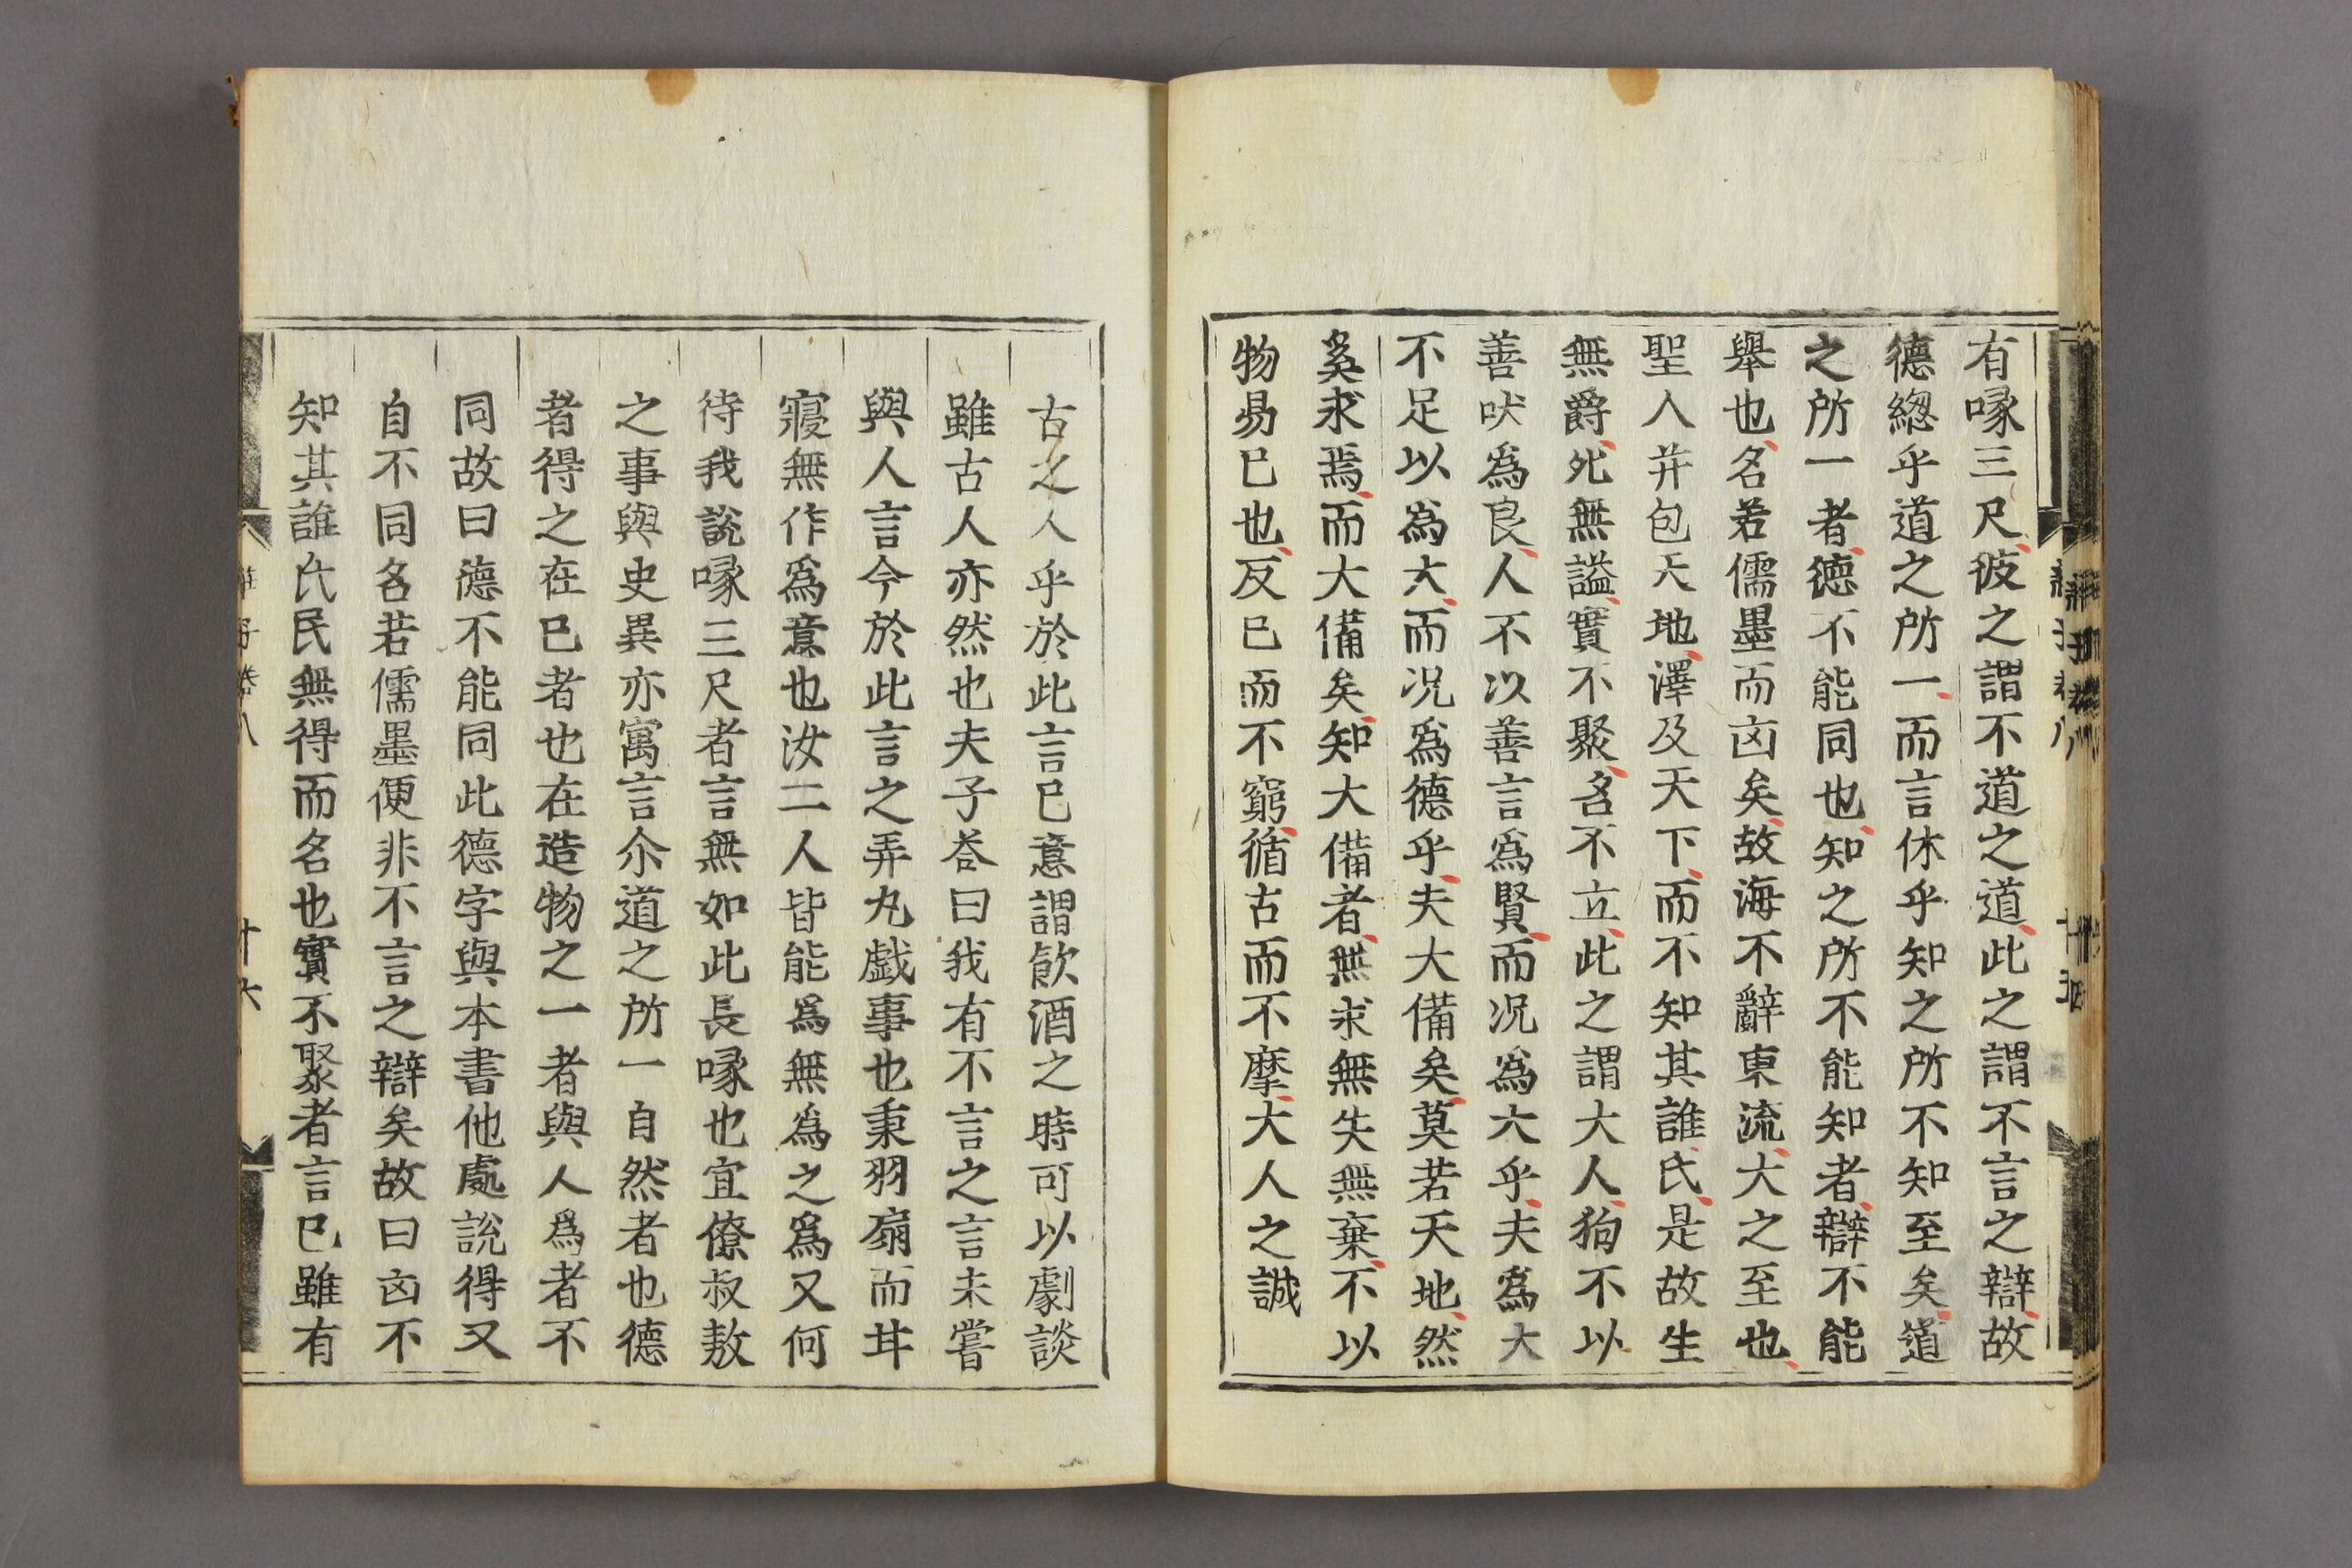 有喙三尺彼之謂不道之道此之謂不言之辯故
德緫乎道之所一而言休乎知之所不知至矣道
之所一者德不能同也知之所不能知者辯不能
舉也名若儒墨而凶矣故海不辭東流大之至也
聖人幷包天地澤及天下而不知其誰氏是故生
無爵死無謚實不聚名不立此之謂大人狗不以
善吠爲良人不以善言爲賢而况爲大乎夫爲大
不足以爲大而况爲德乎夫大備矣莫若天地然
奚求焉而大備矣知大備者無求無失無棄不以
物易已也反已而不窮循古而不摩大人之誠
古之人乎於此言已意謂飮酒之時可以劇談
雖古人亦然也夫子荅曰我有不言之言未嘗
與人言今於此言之弄丸戱事也秉羽扇而甘
寢無作爲意也汝二人皆能爲無爲之爲又何
待我說喙三尺者言無如此長喙也宜僚叔敖
之事與史異亦寓言尒道之所一自然者也德
者得之在已者也在造物之一者與人爲者不
同故曰德不能同此德字與本書他處說得又
自不同名若儒墨便非不言之辯矣故曰凶不
知其誰氏民無得而名也實不聚者言已雖有
莊子卷八
十六